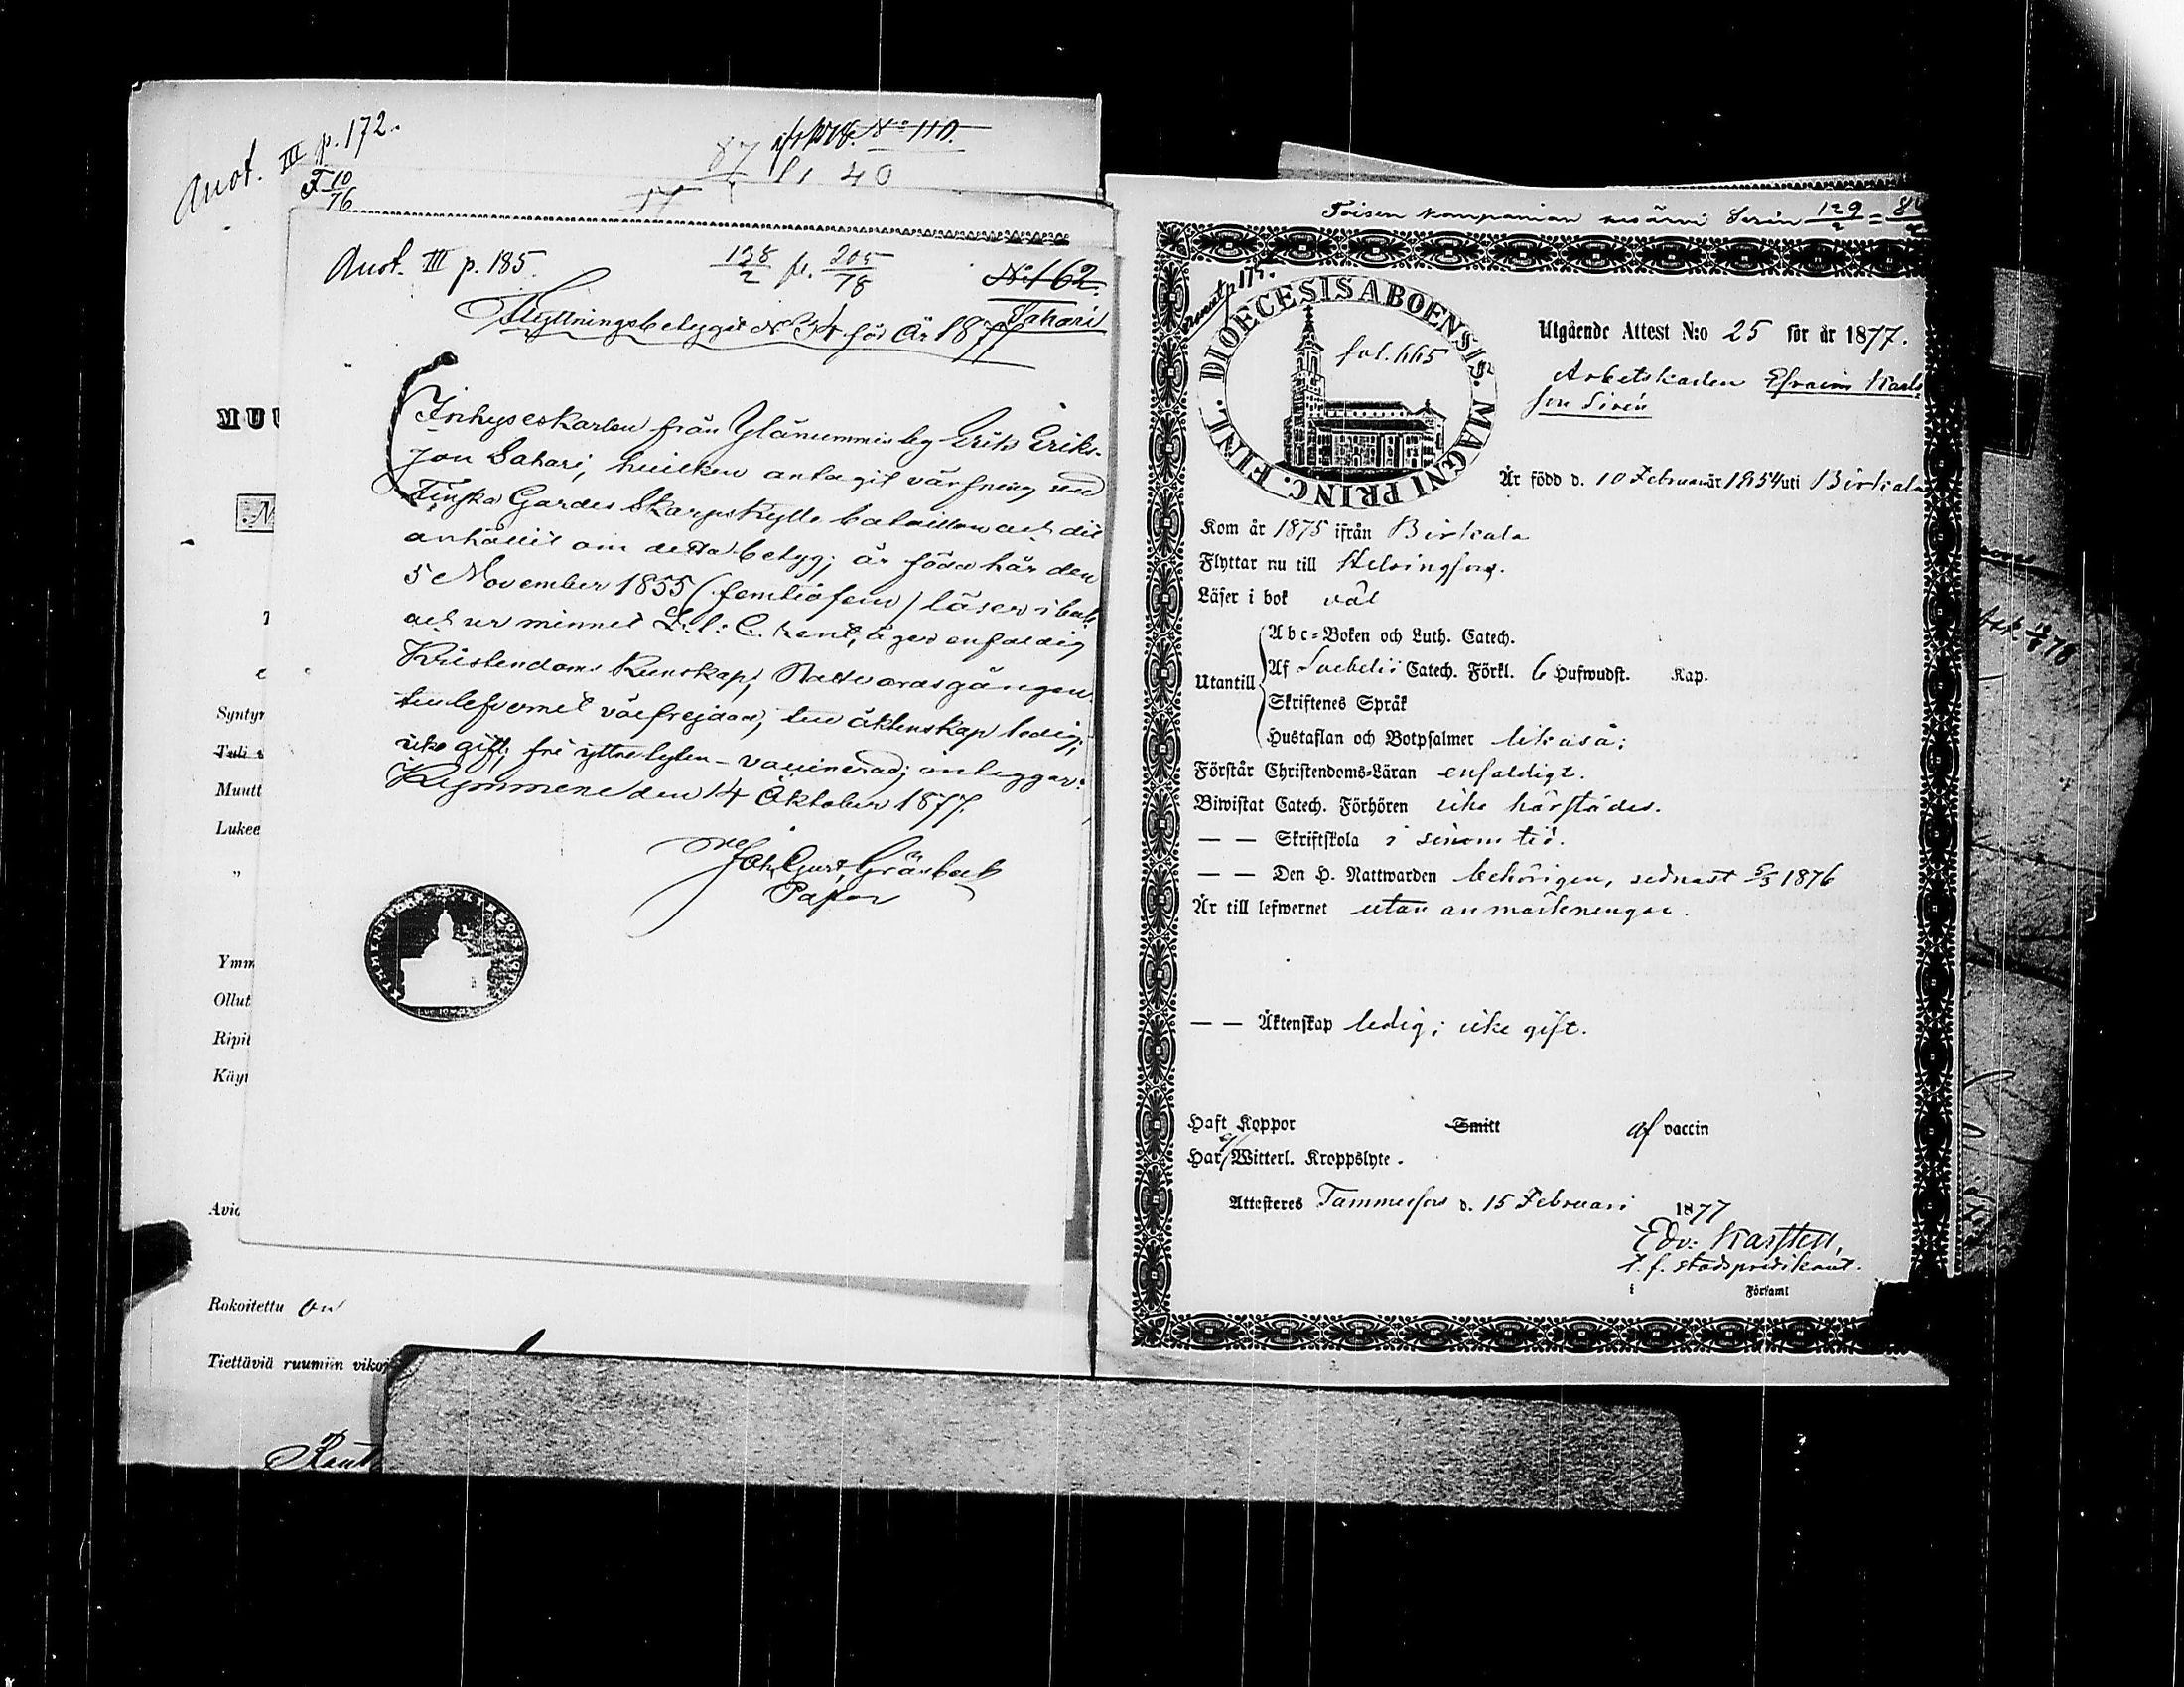 Anot. III p. 172.
F 10/76
No 110.
87
40
MUU
N
Syntyn
Tuli
Muutt
Lukee
"
Ymm
Ollut
Ripit
Käyt
Avio
Rokoitettu on
Tiettäviä ruumiin vikoj
Anot. III p. 185.
138/2 fl. 205/78
No 162.
Flyttningsbetyget No 34 för År 1877
Sahari
Inhyseskarlen från Yläkemmin by Erik Eriks-
son Sahari, hvilken antagit värfning vid
Finska Gardes Skarpskytte bataillon och dit
anhållit om detta betyg; är född här den
5 November 1855 (femtiofem) läser i bok
och ur minnet L. l. C. känt, äger enfaldig
Kristendoms kunskap, Nattvardsgången
till lefvernet välfrejdad, till äktenskap ledig,
icke gift; fri yttre lyten – vaccinerad; intygar:
den 14 Oktober 1877.
Joh. Gust. Gråsbeck
Pastor
Toisen kompanian Sirén 129/2 =
p 175.
DIOECESIS ABOENSIS. MAGNI PRINC. FINL.
fol. 665
Utgående Attest N:o 25 för år 1877.
Arbetskarlen Efraim Karls
son Sirén
Är född d. 10 Februari är 1854 uti Birkala
Kom år 1875 ifrån Birkala
Flyttar nu till Helsingfors.
Läser i bok väl
Utantill
Abc-Boken och Luth. Catech.
Af Svebelii Catech. Förkl. 6 Hufwudst. Kap.
Skriftenes Språk
Hustaflan och Botpsalmer likaså;
Förstår Christendoms-Läran enfaldigt.
Biwistat Catech. Förhören icke härstädes.
— — Skriftskola i sinom tid.
— — Den H. Nattwarden behörigen, sednast 5/3 1876
Är till lefwernet utan anmärkningar.
— — Äktenskap ledig; icke gift.
Haft Koppor Smitt af vaccin
Har ej Witterl. Kroppslyte.
Attesteres Tammerfors d. 15 Februari 1877
Edv: Karsten,
t. f. stadspredikant.
i Församl